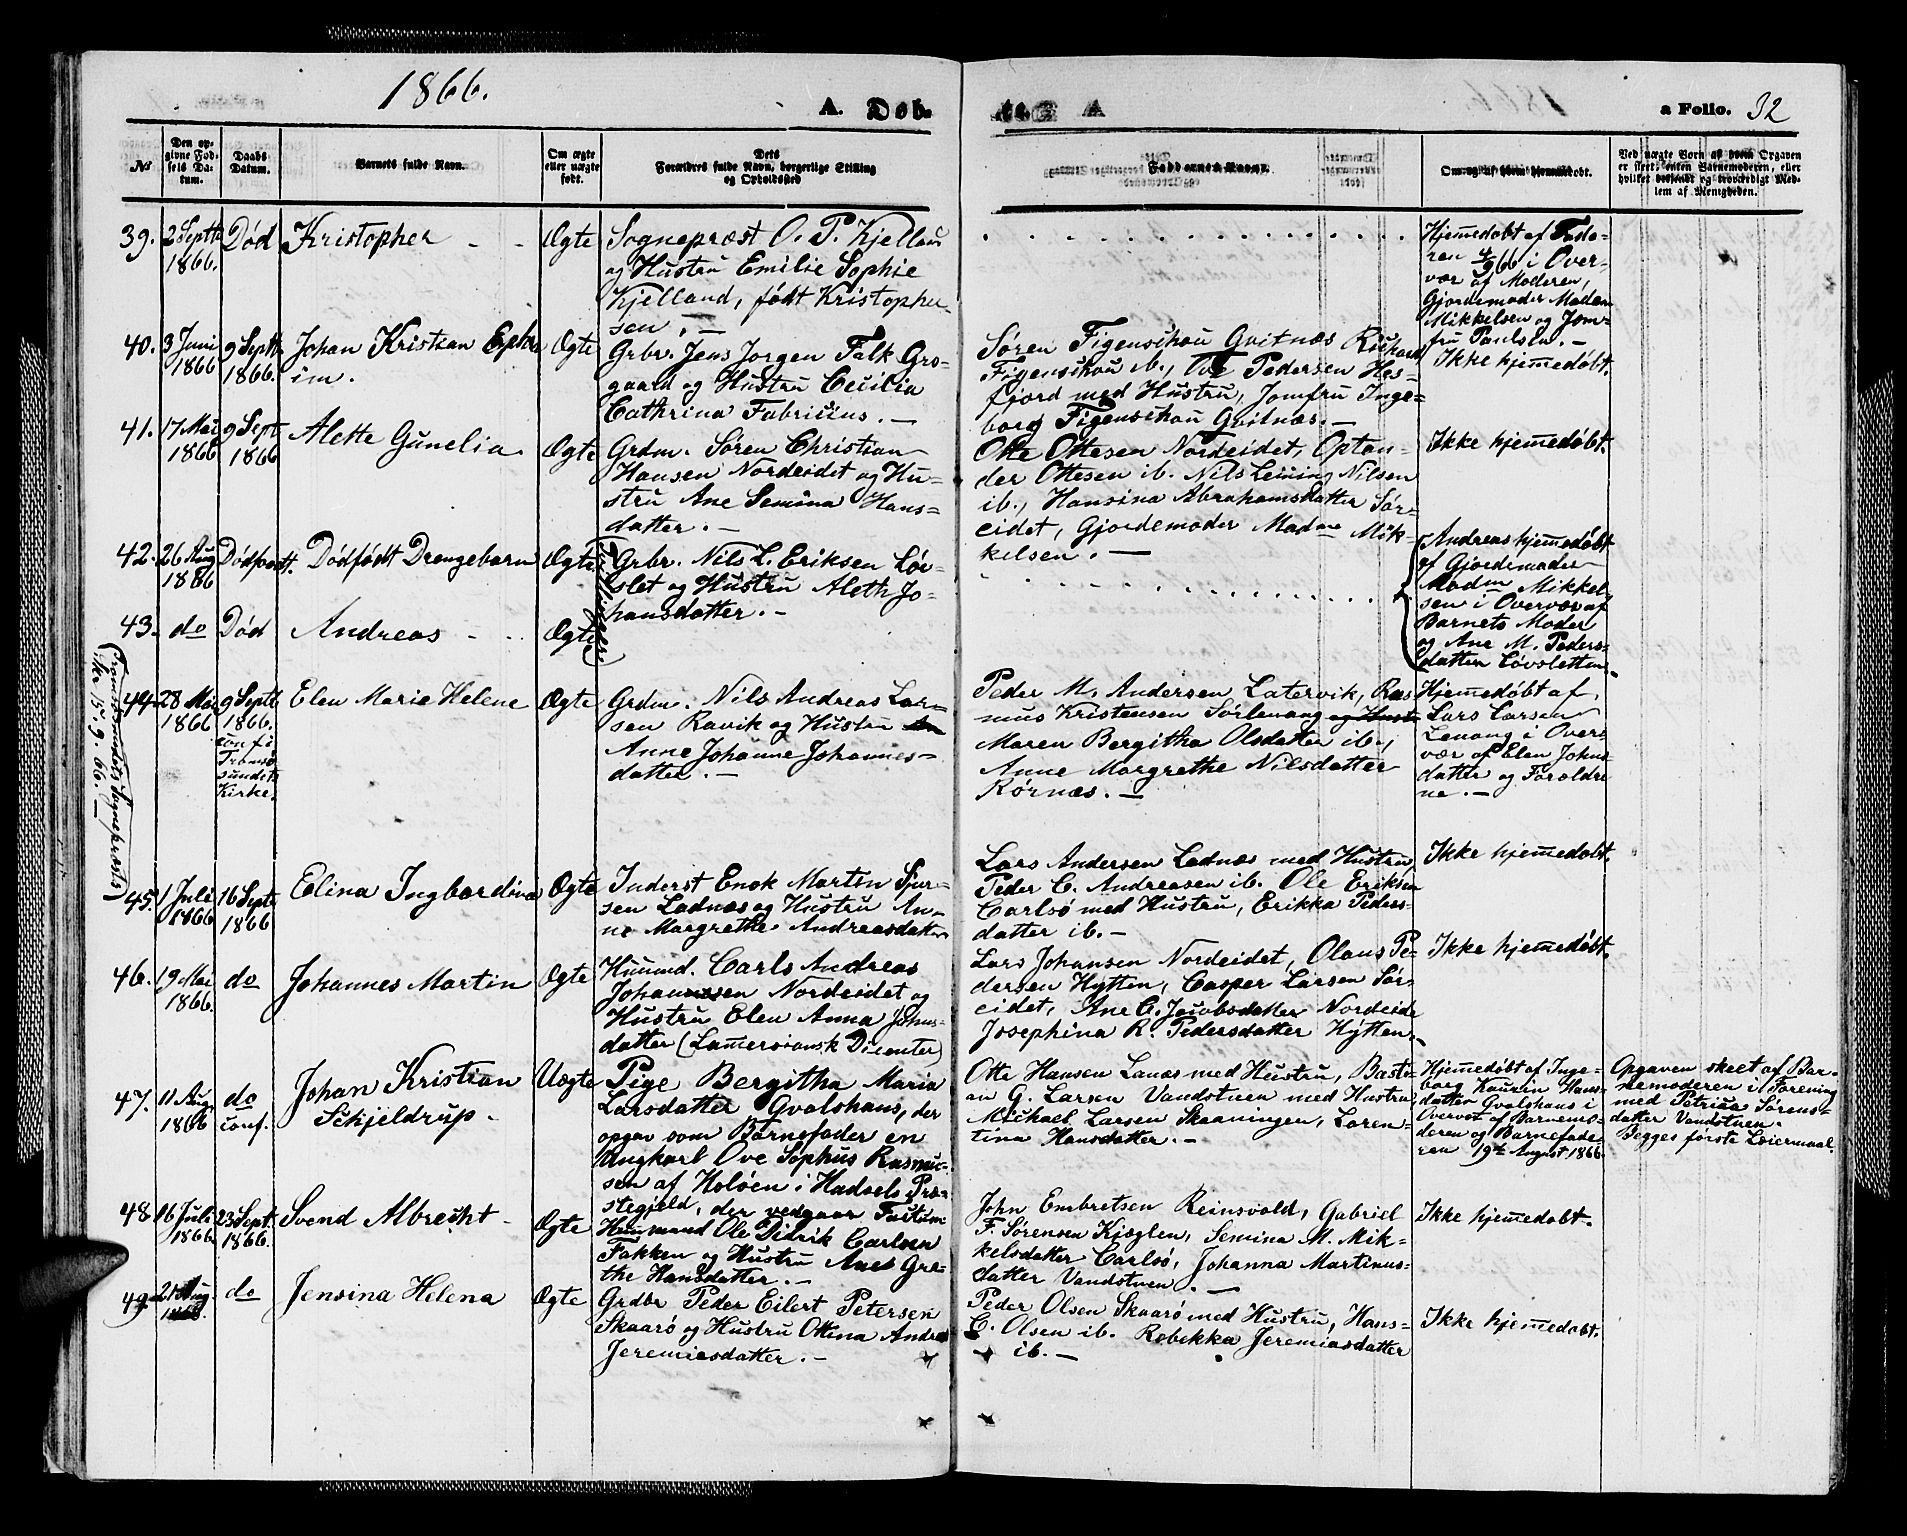 1866.
A. Døb-
te. A
a Folio. 32
No
Den op-
givne Fød-
sels Da-
tum.
Daabs
Datum.
Barnets fulde Navn.
Om ægte
eller uægte
født.
Dets
Forældres fulde Navn, borgerlige Stilling
og Opholdssted
Faddernes Navne.
Om og af hvem hjemmedøbt.
Ved uægte Børn af hvem Opgaven
er skeet, enten Barnemoderen, eller
hvilket bekjendt og troværdigt Med-
lem af Menigheden.
39. 2 Septb 1866. Død Kristopher - - Ægte
Sognepræst O. P. Kjelland
og Hustru Emilie Sophie
Kjelland, født Kristopher-
sen. -
Hjemmedøbt af Fade-
ren 4/9 66 i Over-
vær af Moderen,
Gjordemoder Madam
Mikkelsen og Jom-
fru Paulsen. -
40. 3 Juni 1866 9 Septb 1866. Johan Kristian Ephra-
im. Ægte
Grbr. Jens Jørgen Falk Gro-
gaard og Hustru Cecilia
Cathrina Fabricius. -
Søren Figenschou Gvitnæs Rickard
Figenschou ib., Ove Pedersen Hes-
fjord med Hustru, Jomfru Inge-
borg Figenschou Gvitnæs. -
Ikke hjemmedøbt.
41. 17 Mai 1866 9 Sept 1866 Alette Gunelia. Ægte
Grdm. Søren Christian
Hansen Nordeidet og Hu-
stru Ane Semina Hans-
datter. -
Otte Ottesen Nordeidet, Optan-
der Ottesen ib. Nils Leming Nilsen
ib., Hansina Abrahamsdatter Sør-
eidet, Gjordemoder Madme Mik-
kelsen. -
Ikke hjemmedøbt.
42. 26 Aug 1866 Dødfødt. Dødfødt Drengebarn Ægte
Tvillinger.
Grbr. Nils L. Eriksen Løv-
slet og Hustru Aleth Jo-
hansdatter. -
Andreas hjemmedøbt
af Gjordemoder
Madm Mikkel-
sen i Overvær af
Barnets Moder
og Ane M. Peders-
datter Løvsletten.
43. do Død Andreas - - Ægte
44. 28 Mai 1866 9 Septb 1866.
conf. i
Tromsø-
sundets
Kirke.
Elen Marie Helene Ægte
Grdm. Nils Andreas Lar-
sen Ravik og Hustru
Anne Johanne Johannes-
datter. -
Peder M. Andersen Latervik, Ras-
mus Kristensen Sørlenang og Hust
Maren Bergitha Olsdatter ib.,
Anne Margrethe Nilsdatter
Rørnæs. -
Hjemmedøbt af
Lars Larsen
Lenang i Over-
vær af Elen Johns-
datter og Foreldre-
ne. -
(Tromsøsundets Sognepræsts
Skr. 15/9. 66. -)
45. 1 Juli 1866 16 Septb 1866 Elina Ingbordina Ægte
Inderst Enok Martin Sjur-
sen Ladnæs og Hustru An-
ne Margrethe Andreasdatter
Lars Andersen Ladnæs med Hustru,
Peder C. Andreasen ib. Ole Eriksen
Carlsø med Hustru, Erikka Peders-
datter ib. -
Ikke hjemmedøbt.
46. 19 Mai 1866. do Johannes Martin Ægte
Huusmd. Carls Andreas
Johannesen Nordeidet og
Hustru Elen Anna Johns-
datter (Lamersiansk Dicenter)
Lars Johansen Nordeidet, Olaus Pe-
dersen Hytten, Casper Larsen Sør-
eidet, Ane C. Jacobsdatter Nordeide
Josephina R. Pedersdatter Hytten.
Ikke hjemmedøbt.
47. 11 Aug. 1866 do conf. Johan Kristian
Schjeldrup. Uægte
Pige Bergitha Maria
Larsdatter Gvalshaus, der
opgav som Barnefader en
Ungkarl Ove Sophus Rasmus-
sen af Holøen i Hadsels Præ-
stegjeld, der vedgaar Factum
Otte Hansen Lanæs med Hustru, Basti-
an G. Larsen Vandstuen med Hustru
Mickael Larsen Skaaningen, Loren-
tina Hansdatter. -
Hjemmedøbt af Inge-
borg Kaurin Hans-
datter Gvalshaus i
Overvær af Barnemo-
deren og Barnefade-
ren 19de August 1866.
Opgaven skeet af Bar-
nemoderen i Forening
med Petrica Sørens-
datter Vandstuen.
Begges første Leiermaal.
48. 16 Juli 1866. 23 Sept. 1866. Svend Albrecht - Ægte
Huusmand Ole Didrik Carlsen
Fakken og Hustru Anes Gre-
the Hansdatter. -
John Embretsen Reinsvold, Gabriel
F. Sørensen Kjøglen, Semina M. Mik-
kelsdatter Carlsø, Johanna Martinus-
datter Vandstuen. -
Ikke hjemmedøbt.
49. 21 Aug. 1866. do Jensina Helena Ægte
Grdbr Peder Eilert Petersen
Skaarø og Hustru Ottina Andrea
Jeremiesdatter. -
Peder Olsen Skaarø med Hustru, Hans
C. Olsen ib. Rebekka Jeremiasdatter
ib. -
Ikke hjemmedøbt.